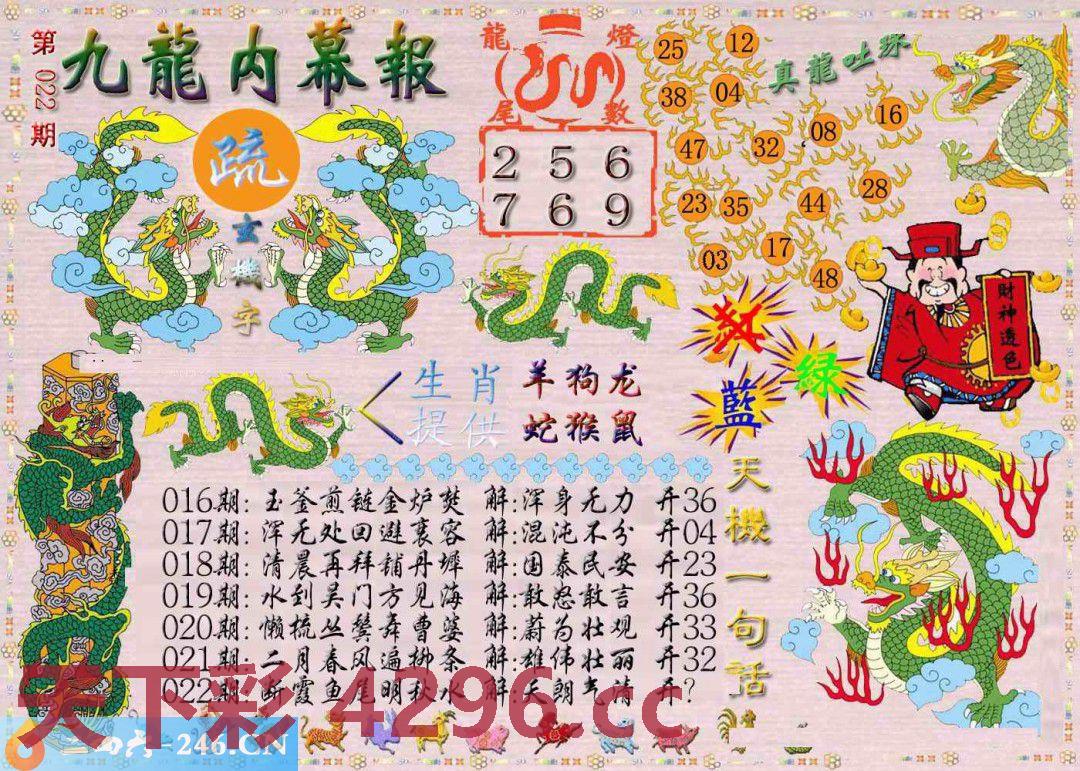 第022期
九龍内幕報
疏
玄機字
龍燈
尾數
2 5 6
7 6 9
真龍吐珠
25 12
38 04
47 32 08 16
23 35 44 28
03 17 48
財神透色
红
藍
綠
生肖提供
羊狗龙
蛇猴鼠
016期:玉釜煎链金炉焚 解:浑身无力 开36
017期:浑无处回避裹容 解:混沌不分 开04
018期:清晨再拜铺丹墀 解:国泰民安 开23
019期:水到吴门方见海 解:敢怒敢言 开36
020期:懒梳丛鬓舞曹婆 解:蔚为壮观 开33
021期:二月春风遍拗条 解:雄伟壮丽 开32
022期:断霞鱼尾明秋水 解:天朗气清 开?
天機一句話
天下彩 4296.cc
246.CN